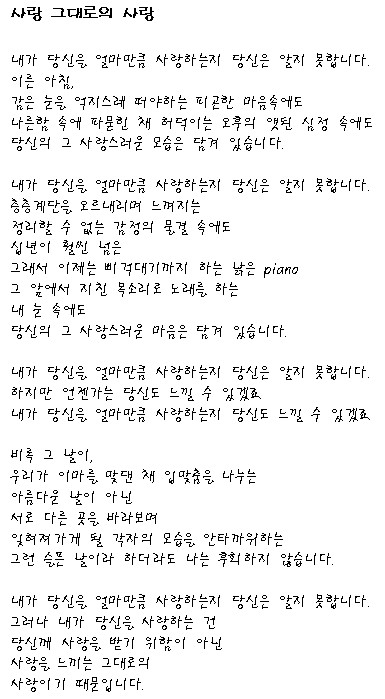 사랑 그대로의 사랑
내가 당신을 얼마만큼 사랑하는지 당신은 알지 못합니다.
이른 아침,
감은 눈을 억지스레 떠야하는 피곤한 마음속에도
나른함 속에 파묻힌 채 허덕이는 오후의 앳된 심정 속에도
당신의 그 사랑스러운 모습은 담겨 있습니다.
내가 당신을 얼마만큼 사랑하는지 당신은 알지 못합니다.
층층계단을 오르내리며 느껴지는
정리할 수 없는 감정의 물결 속에도
십년이 훨씬 넘은
그래서 이제는 삐걱대기까지 하는 낡은 piano
그 앞에서 지친 목소리로 노래를 하는
내 눈 속에도
당신의 그 사랑스러운 마음은 담겨 있습니다.
내가 당신을 얼마만큼 사랑하는지 당신은 알지 못합니다.
하지만 언젠가는 당신도 느낄 수 있겠죠
내가 당신을 얼마만큼 사랑하는지 당신도 느낄 수 있겠죠
비록 그 날이,
우리가 이마를 맞댄 채 입맞춤을 나누는
아름다운 날이 아닌
서로 다른 곳을 바라보며
잊혀져가게 될 각자의 모습을 안타까워하는
그런 슬픈 날이라 하더라도 나는 후회하지 않습니다.
내가 당신을 얼마만큼 사랑하는지 당신은 알지 못합니다.
그러나 내가 당신을 사랑하는 건
당신께 사랑을 받기 위함이 아닌
사랑을 느끼는 그대로의
사랑이기 때문입니다.